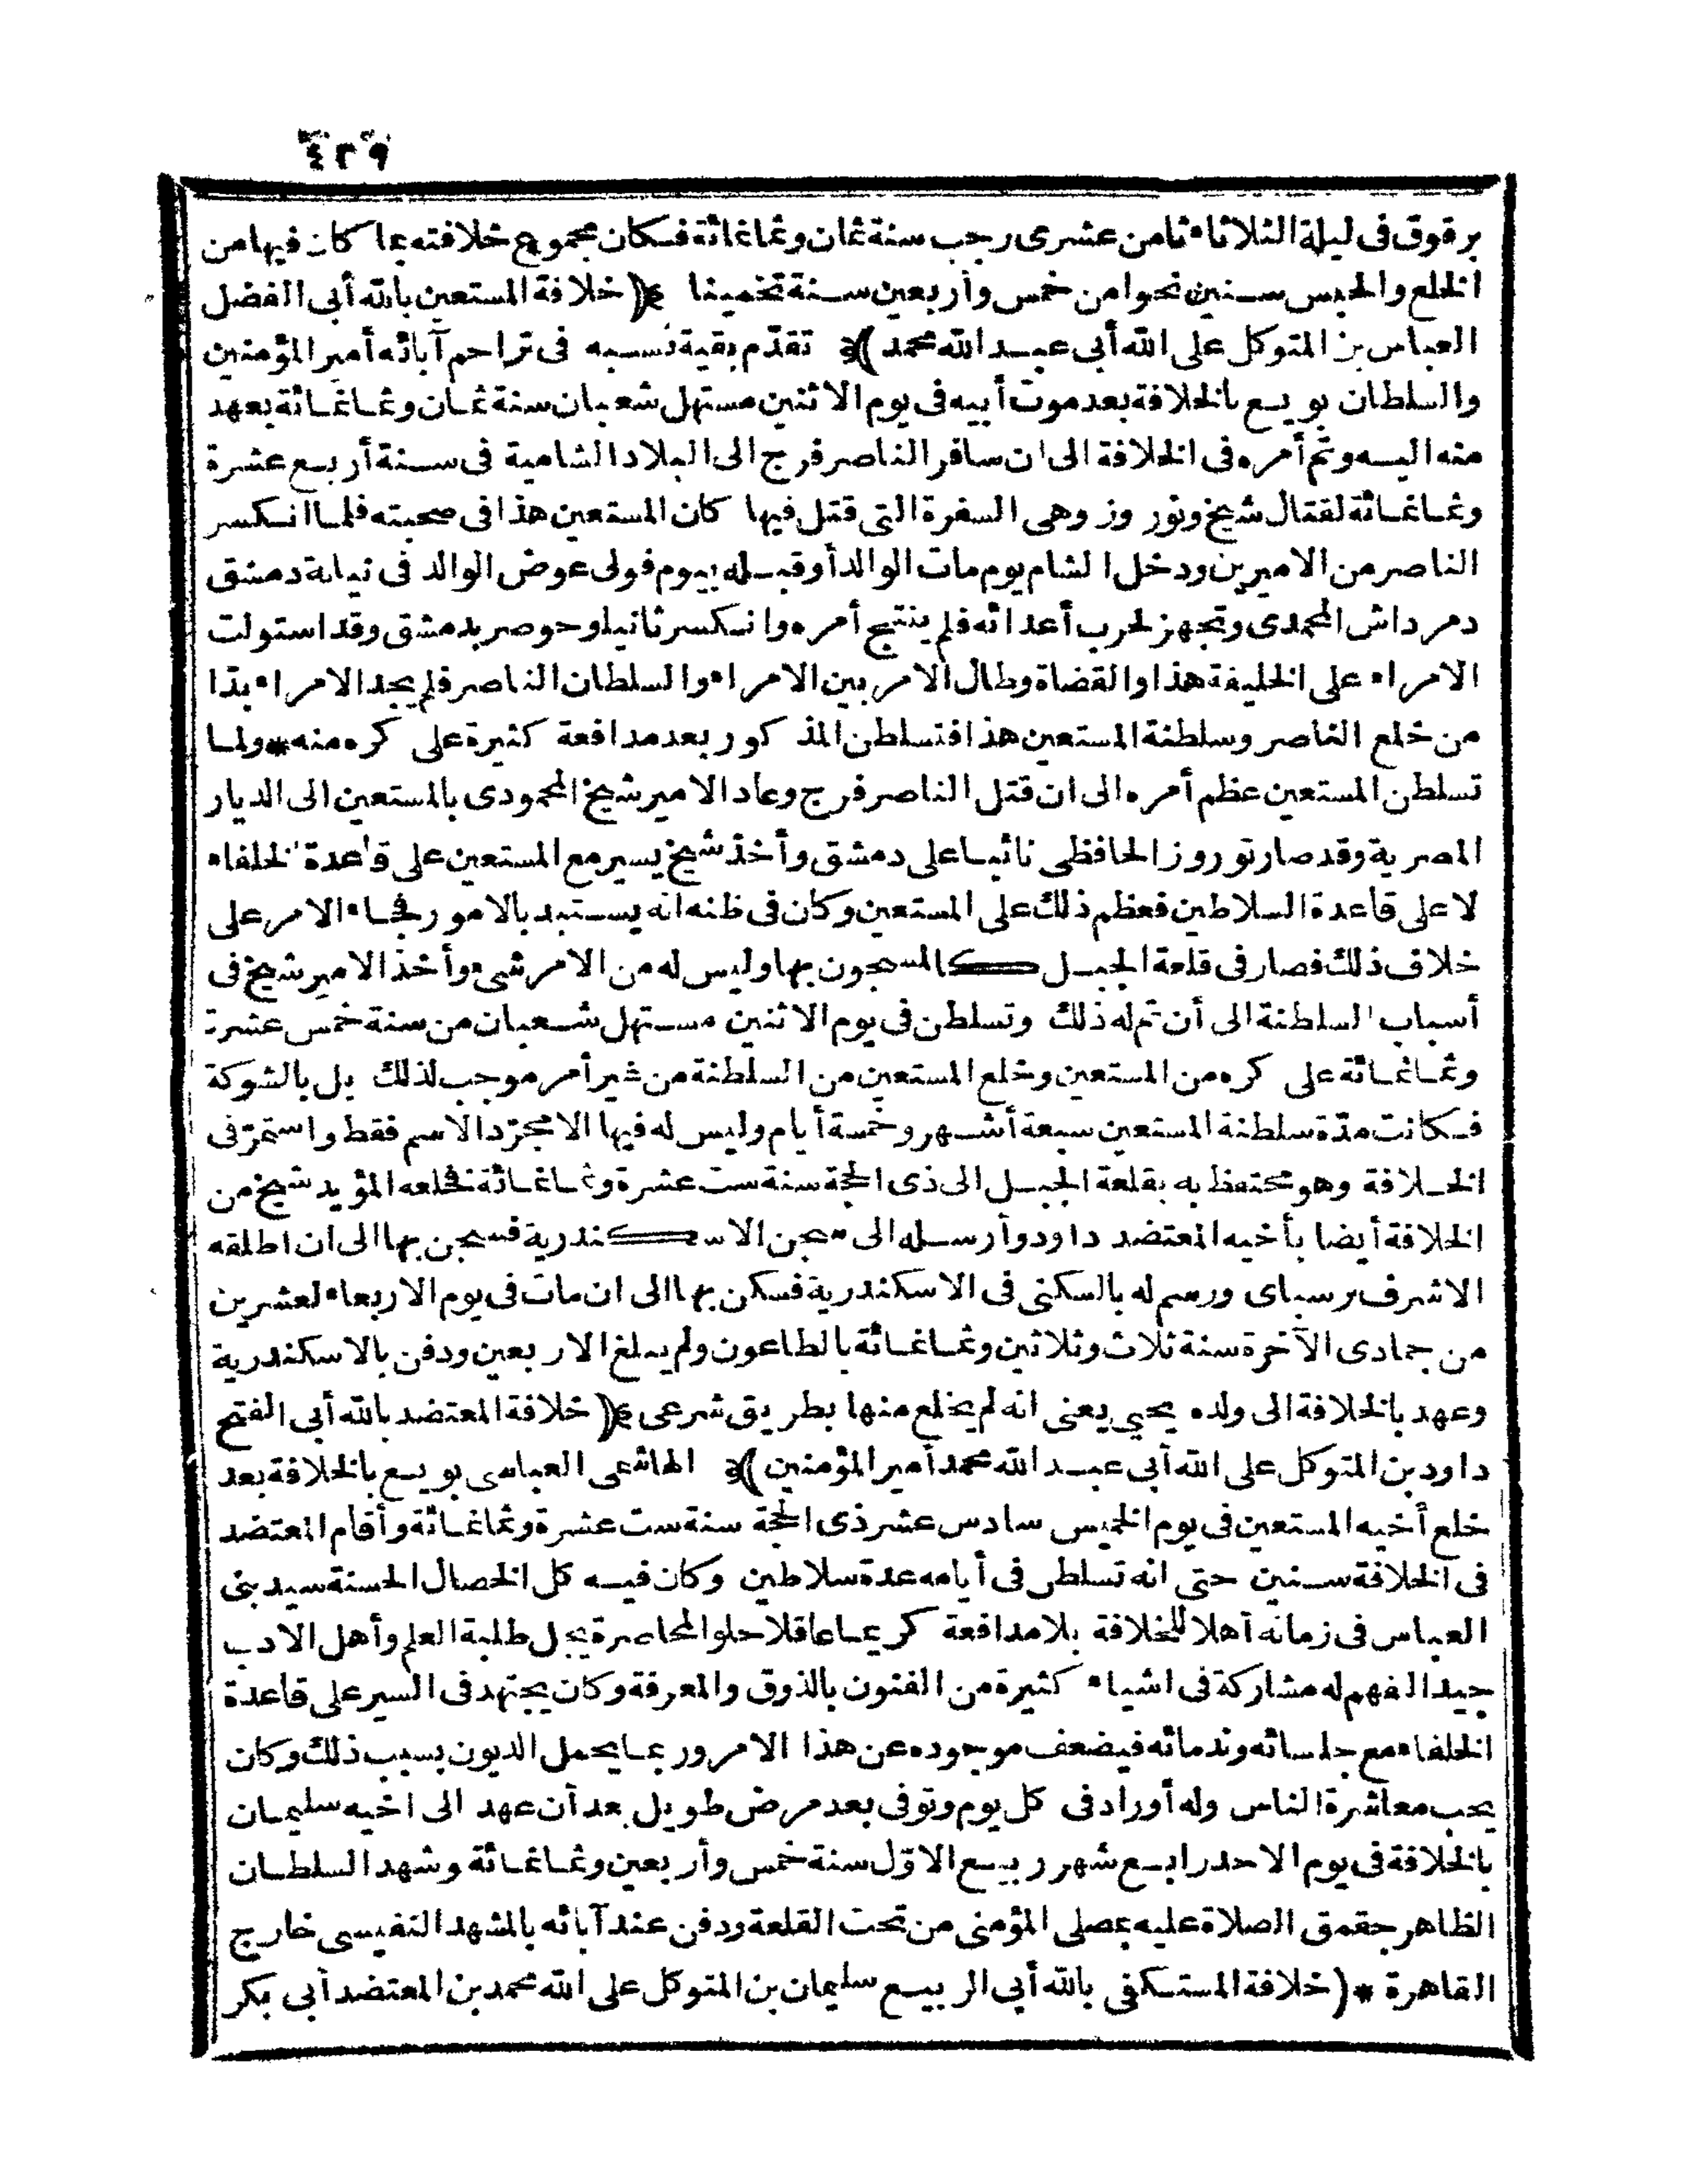 ٤٢٩
برقوق فى ليلة الثلاثاء ثامن عشرى رجب سنة ثمان وثمانمائة فكان مجموع خلافته بما كان فيها من
الخلع والحبس سنين نحوا من خمس وأربعين سنة تخمينا *(خلافة المستعين بالله أبى الفضل
العباس بن المتوكل على الله أبى عبد الله محمد)* تقدّم بقية نسبه فى تراجم آبائه أمير المؤمنين
والسلطان بويع بالخلافة بعد موت أبيه فى يوم الاثنين مستهل شعبان سنة ثمان وثمانمائة بعهد
منه اليه وتم أمره فى الخلافة الى ان سافر الناصر فرج الى البلاد الشامية فى سنة أربع عشرة
وثمانمائة لقتال شيخ ونوروز وهى السفرة التى قتل فيها كان المستعين هذا فى صحبته فلما انكسر
الناصر من الاميرين ودخل الشام يوم مات الوالد أو قبله بيوم فولى عوض الوالد فى نيابة دمشق
دمرداش المحمدى وتجهز لحرب أعدائه فلم ينتج أمره وانكسر ثانيا وحوصر بدمشق وقد استولت
الامراء على الخليفة هذا والقضاة وطال الامر بين الامراء والسلطان الناصر فلم يجد الامراء بدّا
من خلع الناصر وسلطنة المستعين هذا فتسلطن المذكور بعد مدافعة كثيرة على كره منه * ولما
تسلطن المستعين عظم أمره الى ان قتل الناصر فرج وعاد الامير شيخ المحمودى بالمستعين الى الديار
المصرية وقد صار نوروز الحافظى نائبا على دمشق وأخذ شيخ يسير مع المستعين على قاعدة الخلفاء
لا على قاعدة السلاطين فعظم ذلك على المستعين وكان فى ظنه انه يستبد بالامور فجاء الامر على
خلاف ذلك فصار فى قلعة الجبل كالمسجون بها وليس له من الامر شىء وأخذ الامير شيخ فى
أسباب السلطنة الى أن تم له ذلك وتسلطن فى يوم الاثنين مستهل شعبان من سنة خمس عشرة
وثمانمائة على كره من المستعين وخلع المستعين من السلطنة من غير أمر موجب لذلك بل بالشوكة
فكانت مدّة سلطنة المستعين سبعة أشهر وخمسة أيام وليس له فيها الا مجرّد الاسم فقط واستمرّ فى
الخلافة وهو محتفظ به بقلعة الجبل الى ذى الحجة سنة ست عشرة وثمانمائة فخلعه المؤيد شيخ من
الخلافة أيضا بأخيه المعتضد داود وأرسله الى سجن الاسكندرية فسجن بها الى ان اطلقه
الاشرف برسباى ورسم له بالسكنى فى الاسكندرية فسكن بها الى ان مات فى يوم الاربعاء لعشرين
من جمادى الآخرة سنة ثلاث وثلاثين وثمانمائة بالطاعون ولم يبلغ الاربعين ودفن بالاسكندرية
وعهد بالخلافة الى ولده يحيى يعنى انه لم يخلع منها بطريق شرعى *(خلافة المعتضد بالله أبى الفتح
داود بن المتوكل على الله أبى عبد الله محمد أمير المؤمنين)* الهاشمى العباسى بويع بالخلافة بعد
خلع أخيه المستعين فى يوم الخميس سادس عشر ذى الحجة سنة ست عشرة وثمانمائة وأقام المعتضد
فى الخلافة سنين حتى انه تسلطن فى أيامه عدة سلاطين وكان فيه كل الخصال الحسنة سيد بنى
العباس فى زمانه أهلا للخلافة بلا مدافعة كريما عاقلا حلو المحاضرة يجل طلبة العلم وأهل الادب
جيد الفهم له مشاركة فى اشياء كثيرة من الفنون بالذوق والمعرفة وكان يجتهد فى السير على قاعدة
الخلفاء مع جلسائه وندمائه فيضعف موجوده عن هذا الامر وربما يحمل الديون بسبب ذلك وكان
يحب معاشرة الناس وله أوراد فى كل يوم وتوفى بعد مرض طويل بعد أن عهد الى اخيه سليمان
بالخلافة فى يوم الاحد رابع شهر ربيع الاوّل سنة خمس وأربعين وثمانمائة وشهد السلطان
الظاهر جقمق الصلاة عليه بمصلى المؤمنى من تحت القلعة ودفن عند آبائه بالمشهد النفيسى خارج
القاهرة *(خلافة المستكفى بالله أبى الربيع سليمان بن المتوكل على الله محمد بن المعتضد أبى بكر